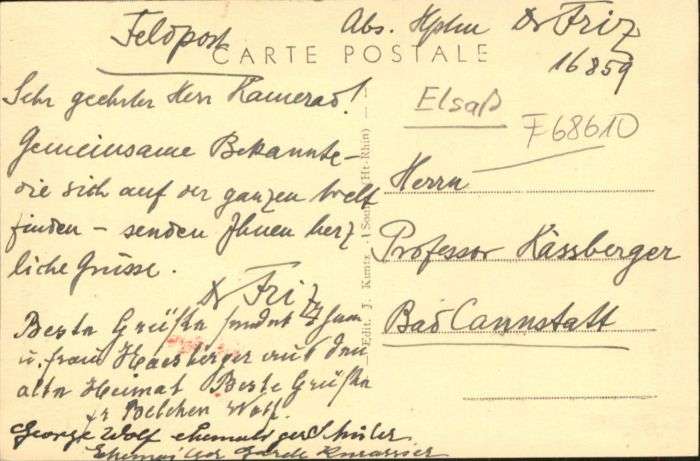 Feldpost
Abs. Hptm Dr Friz
16859
CARTE POSTALE
Elsaß
F 68610
Sehr geehrter Herr Kamerad!
Gemeinsame Bekannte –
die sich auf der ganzen Welt
finden – senden Ihnen herz
liche Grüsse.
Dr Friz
Beste Grüße sendet Ihnen
u. Frau Haesberger aus der
alten Heimat Beste Grüße
Belchen
George Wolf ehemaliger Schüler
Garde
Edit. J. Kuntz, (Ht-Rhin)
Herrn
Professor Kässberger
Bad Cannstatt